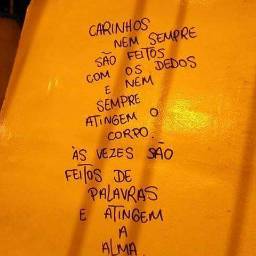 CARINHOS
NEM SEMPRE
SÃO FEITOS
COM OS DEDOS
E NEM
SEMPRE
ATINGEM O
CORPO.
ÀS VEZES SÃO
FEITOS DE
PALAVRAS
E ATINGEM
A
ALMA.